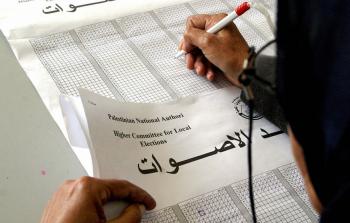 الاصوات
Palestinian National Authori
Higher Committee for Local
Elections
الاصوات